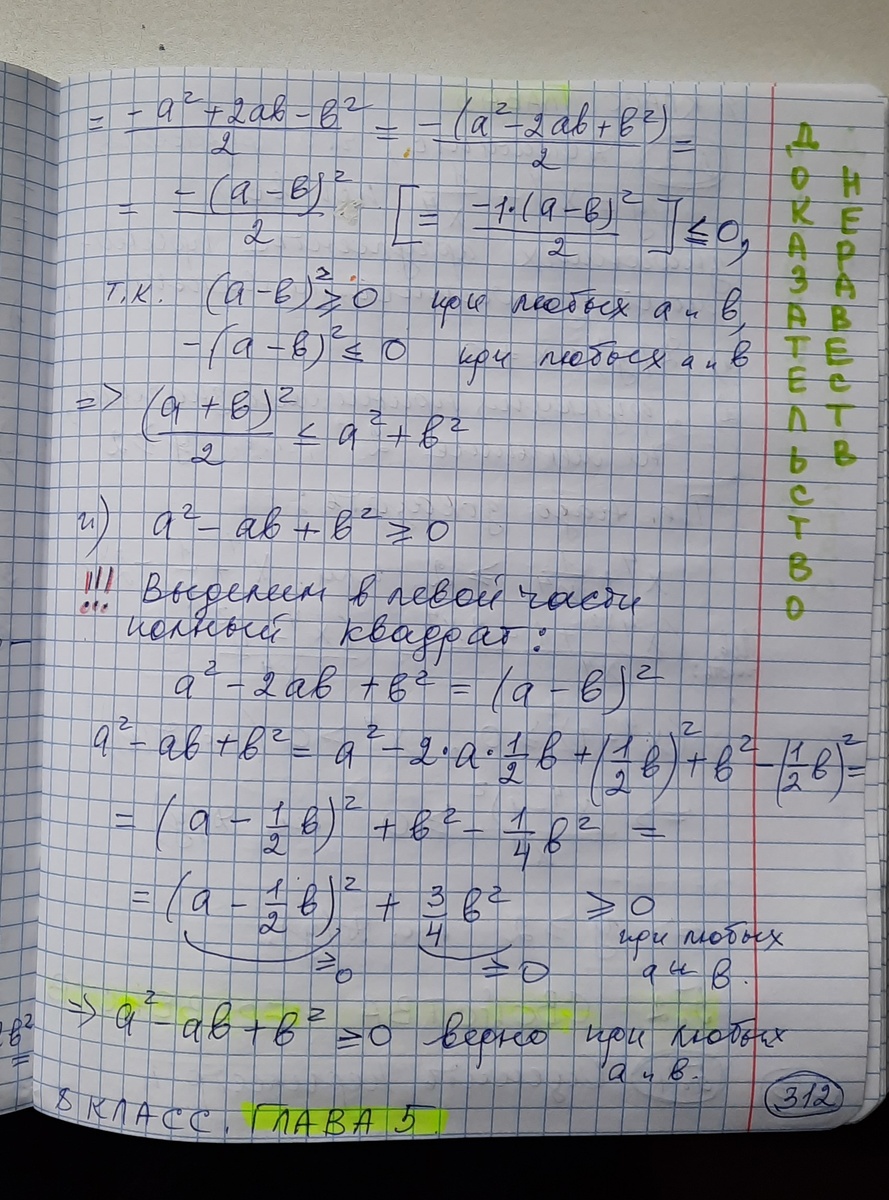 = (-a² + 2ab - b²)/2 = -(a² - 2ab + b²)/2 =
= -(a - b)²/2 [= -1·(a - b)²/2] ≤ 0,
т.к. (a - b)² ≥ 0 при любых a и b,
-(a - b)² ≤ 0 при любых a и b
=> (a + b)²/2 ≤ a² + b²
г) a² - ab + b² ≥ 0
!!! Выделим в левой части
полный квадрат:
a² - 2ab + b² = (a - b)²
a² - ab + b² = a² - 2·a·1/2 b + (1/2 b)² + b² - (1/2 b)² =
= (a - 1/2 b)² + b² - 1/4 b² =
= (a - 1/2 b)² + 3/4 b² ≥ 0
при любых
≥0 ≥0 a и b.
=> a² - ab + b² ≥ 0 верно при любых
a и b.
8 КЛАСС. ГЛАВА 5
312
ДОКАЗАТЕЛЬСТВО
НЕРАВЕСТВ
b²
=